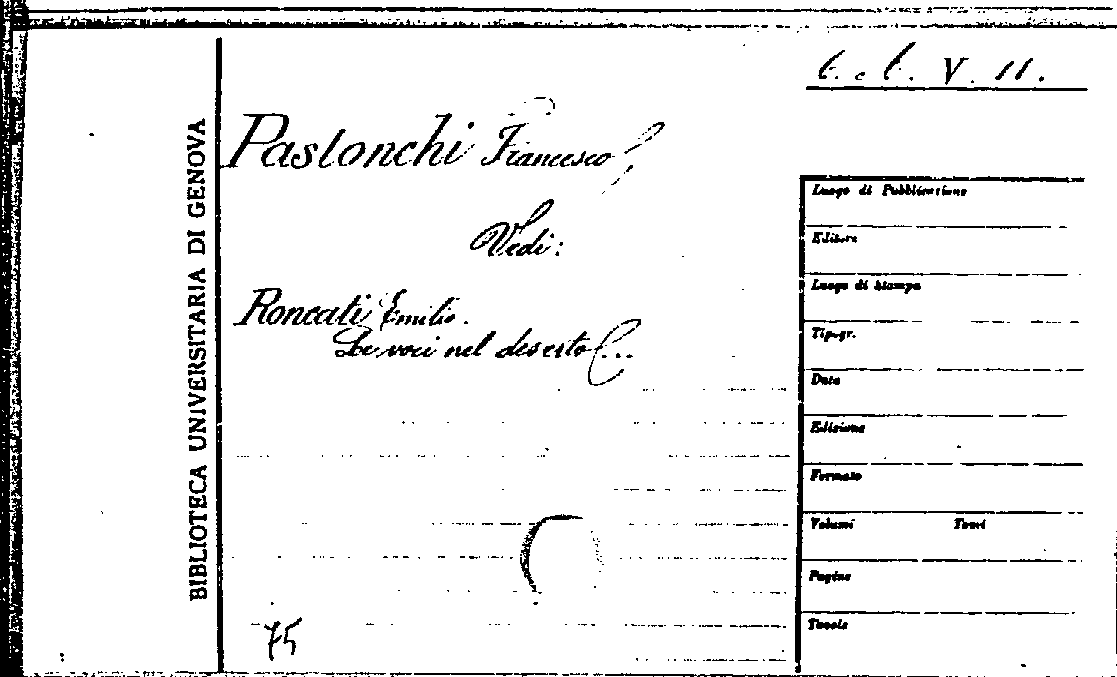 BIBLIOTECA UNIVERSITARIA DI GENOVA
V. 11.
Pastonchi Francesco
Vedi:
Roncati Emilio.
Le voci nel deserto (...
75
Luogo di Pubblicazione
Editore
Luogo di Stampa
Tipogr.
Data
Edizione
Formato
Volumi Tomi
Pagine
Tavole